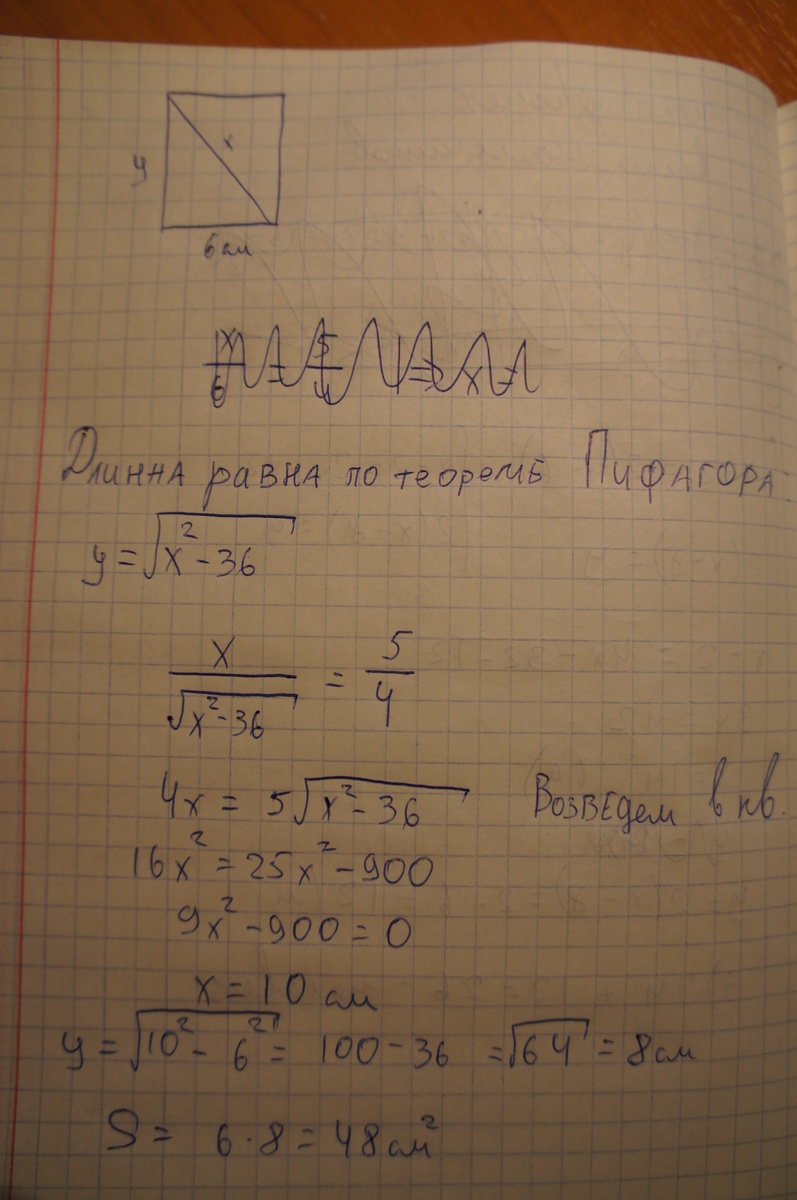 x
y
6 см
Длинна равна по теореме Пифагора
y = √x² - 36
x / √x² - 36 = 5 / 4
4x = 5√x² - 36 Возведем в кв.
16x² = 25x² - 900
9x² - 900 = 0
x = 10 см
y = √10² - 6² = 100 - 36 = √64 = 8 см
S = 6 · 8 = 48 см²